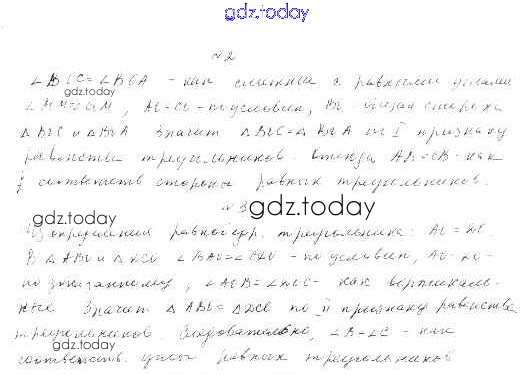 gdz.today
№2
∠BOC=∠BOA - как смежные с равными углами
gdz.today
AO=CO - по условию, BO - общая сторона
△BOC и △BOA Значит △BOC=△BOA по I признаку
равенства треугольников. Отсюда AB=CB - как
соответств стороны равных треугольников.
№3
gdz.today
gdz.today
Из определения равнобедр. треугольника: AO=DO.
В △ABO и △DCO - по условию, AO=DO -
по доказанному, - как вертикаль-
ные Значит △ABO=△DCO по II признаку равенства
треугольников. Следовательно, ∠B=∠C - как
соответств. углы равных треугольников
gdz.today